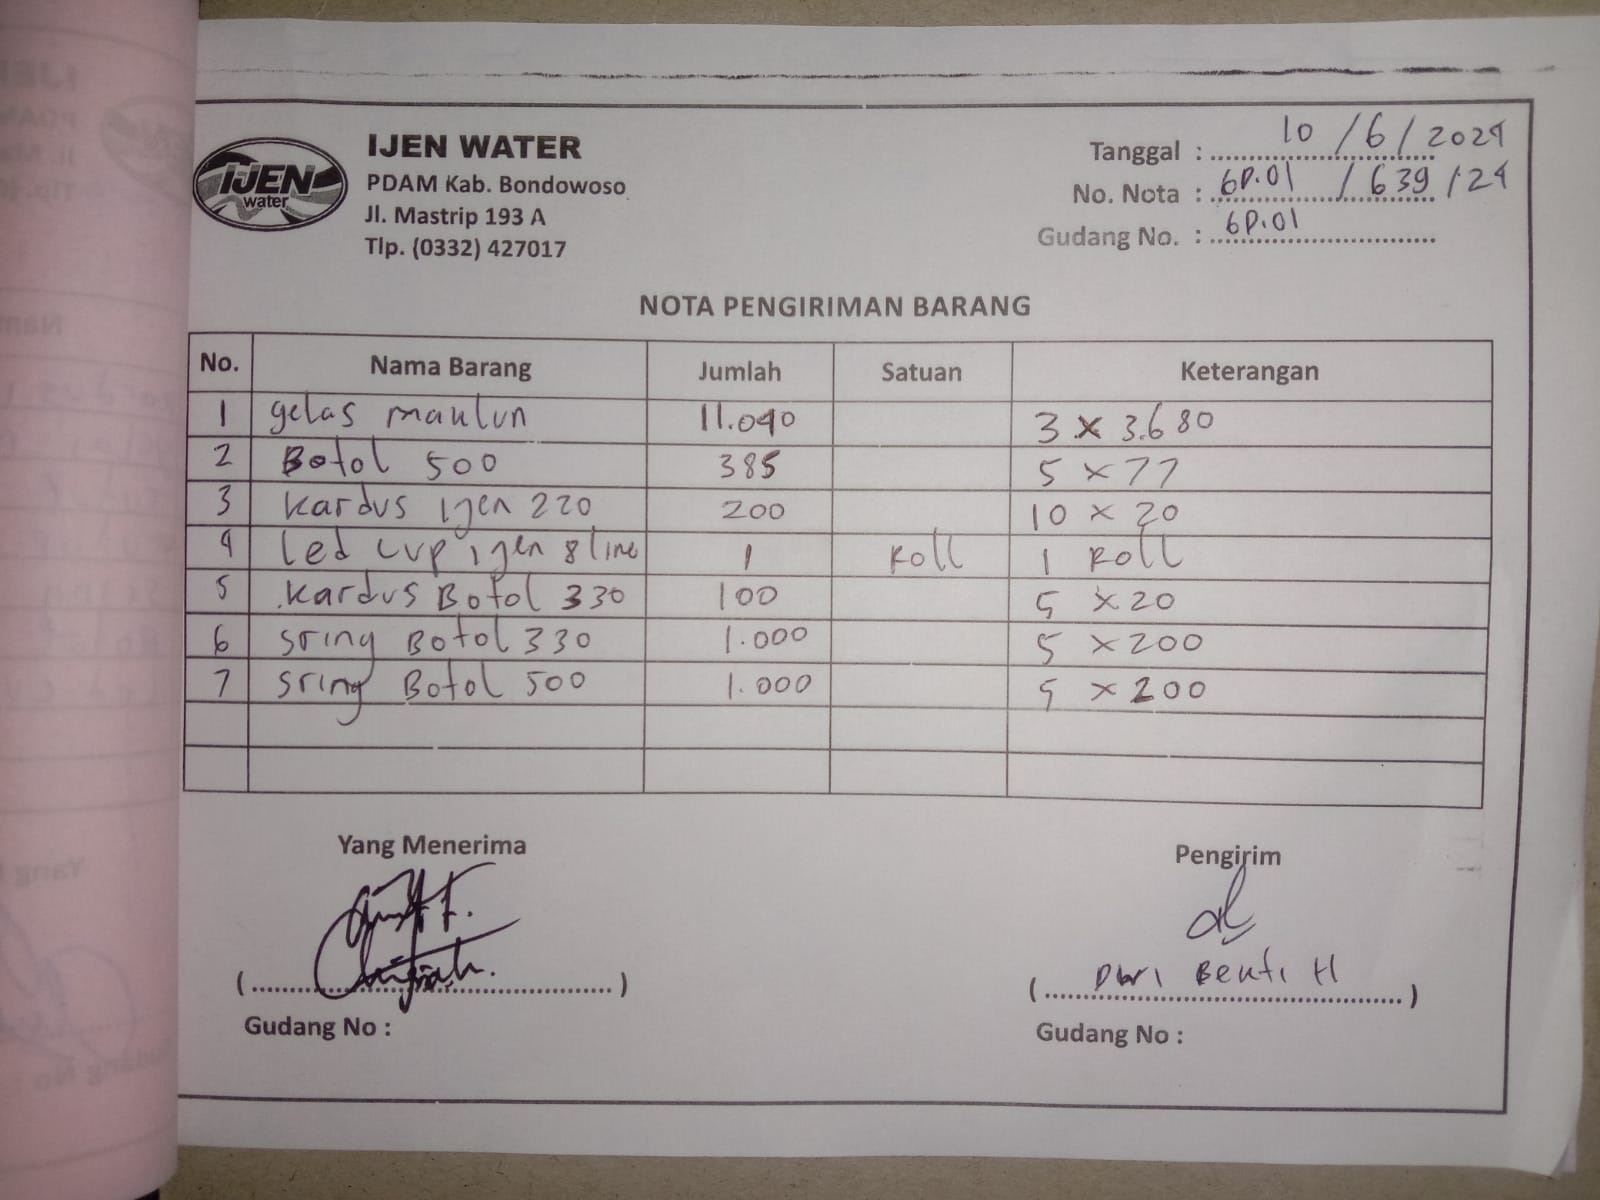 IJEN water
IJEN WATER
PDAM Kab. Bondowoso
Jl. Mastrip 193 A
Tlp. (0332) 427017
Tanggal : 10 / 6 / 2024
No. Nota : 6P.01 / 639 / 24
Gudang No. : 6P.01
NOTA PENGIRIMAN BARANG
No. Nama Barang Jumlah Satuan Keterangan
1 gelas maulun 11.040 3 x 3.680
2 Botol 500 385 5 x 77
3 Kardus ijen 220 200 10 x 20
4 Led cup ijen 8 line 1 Roll 1 Roll
5 Kardus Botol 330 100 5 x 20
6 sring Botol 330 1.000 5 x 200
7 sring Botol 500 1.000 5 x 200
Yang Menerima
Pengirim
( )
( H )
Gudang No :
Gudang No :